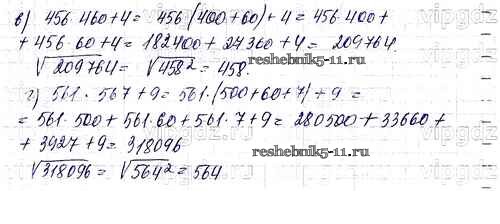 в) 456·460+4= 456·(400+60)+4=456·400+
+456·60+4=182400+27360+4= 209764.
√209764= √458²=458.
reshebnik5-11.ru
г) 561·567+9=561·(500+60+7)+9=
=561·500+561·60+561·7+9=280500+33660+
+3927+9=318096
reshebnik5-11.ru
√318096= √564²=564
vipgdz